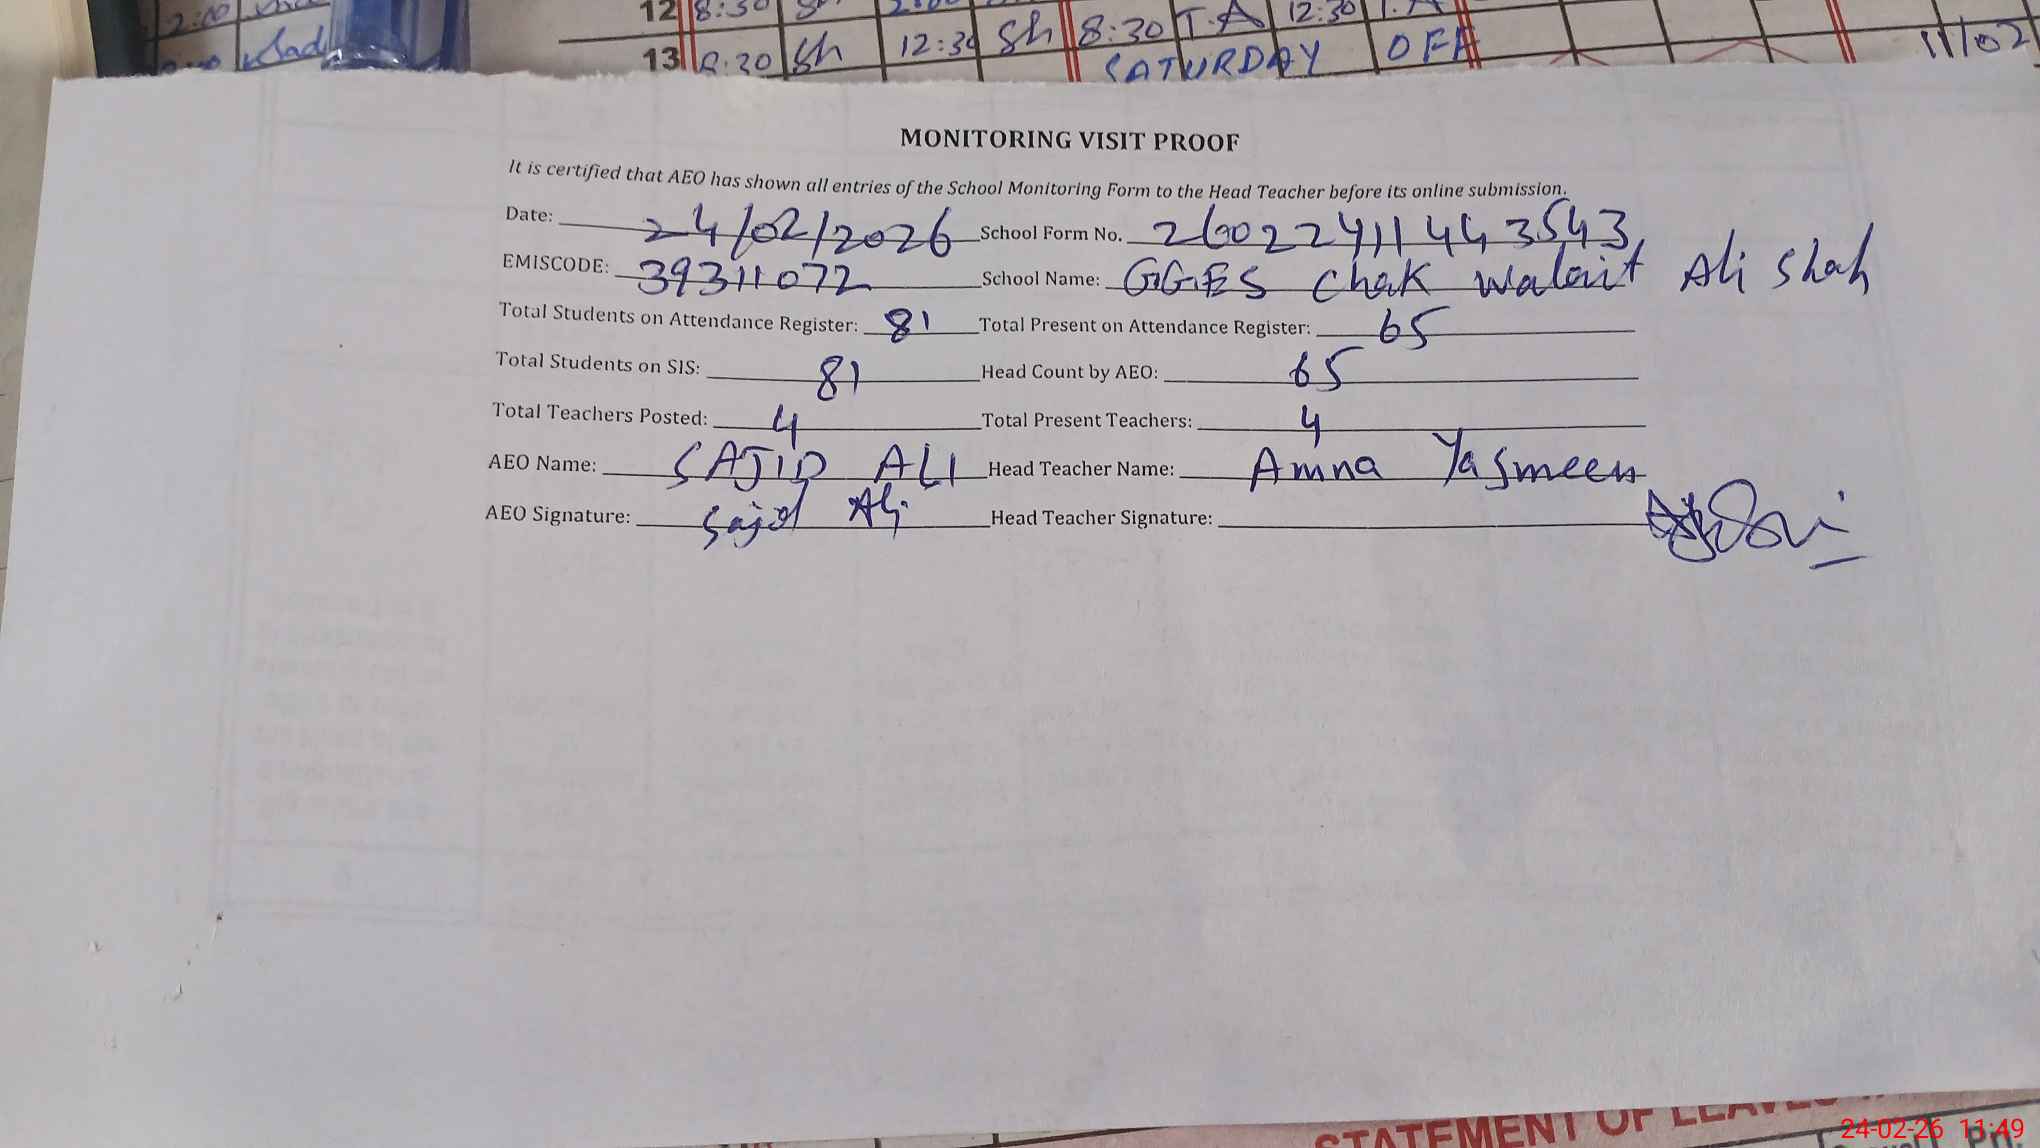 12 8:30 Sh
12:30 T.A
13 8:30 Sh 12:30 Sh 8:30 T.A
SATURDAY OFF
11/02
2:00
MONITORING VISIT PROOF
It is certified that AEO has shown all entries of the School Monitoring Form to the Head Teacher before its online submission.
Date: 24/02/2026 School Form No. 26022411443543
EMISCODE: 39311072 School Name: GGES Chak Walait Ali Shah
Total Students on Attendance Register: 81 Total Present on Attendance Register: 65
Total Students on SIS: 81 Head Count by AEO: 65
Total Teachers Posted: 4 Total Present Teachers: 4
AEO Name: SAJID ALI Head Teacher Name: Amna Yasmeen
AEO Signature: Sajid Ali Head Teacher Signature:
STATEMENT OF LEAVES
24-02-26 11:49